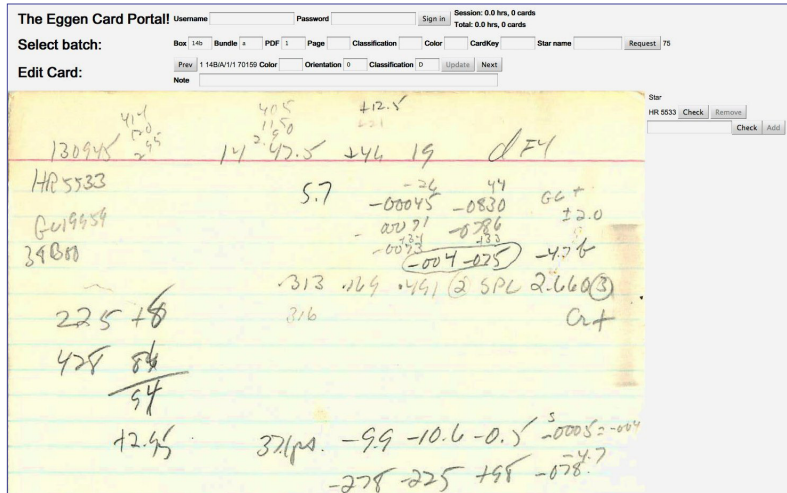 The Eggen Card Portal! Username Password Sign in Session: 0.0 hrs, 0 cards
Total: 0.0 hrs, 0 cards
Select batch: Box 14b Bundle a PDF 1 Page Classification Color CardKey Star name Request 75
Edit Card: Prev 1 14B/A/1/1 70159 Color Orientation 0 Classification D Update Next
Note
Star
HR 5533 Check Remove
Check Add
414 405 +12.5
120 1150
295 2.90
130945 14 47.5 +46 19 d F4
HR 5533 5.7 -26 44
-00045 -0830 GC +
GC19559 - 00071 -0786 ±2.0
39B00 -0073 -004 -075 -4.7b
.313 .169 .491 2 SPL 2.660 3
316 Cr+
225 +8
428 86
94
+2.95 37.1ps. -9.9 -10.6 -0.5 -0005 = -004
-4.7
-278 -225 +98 -078